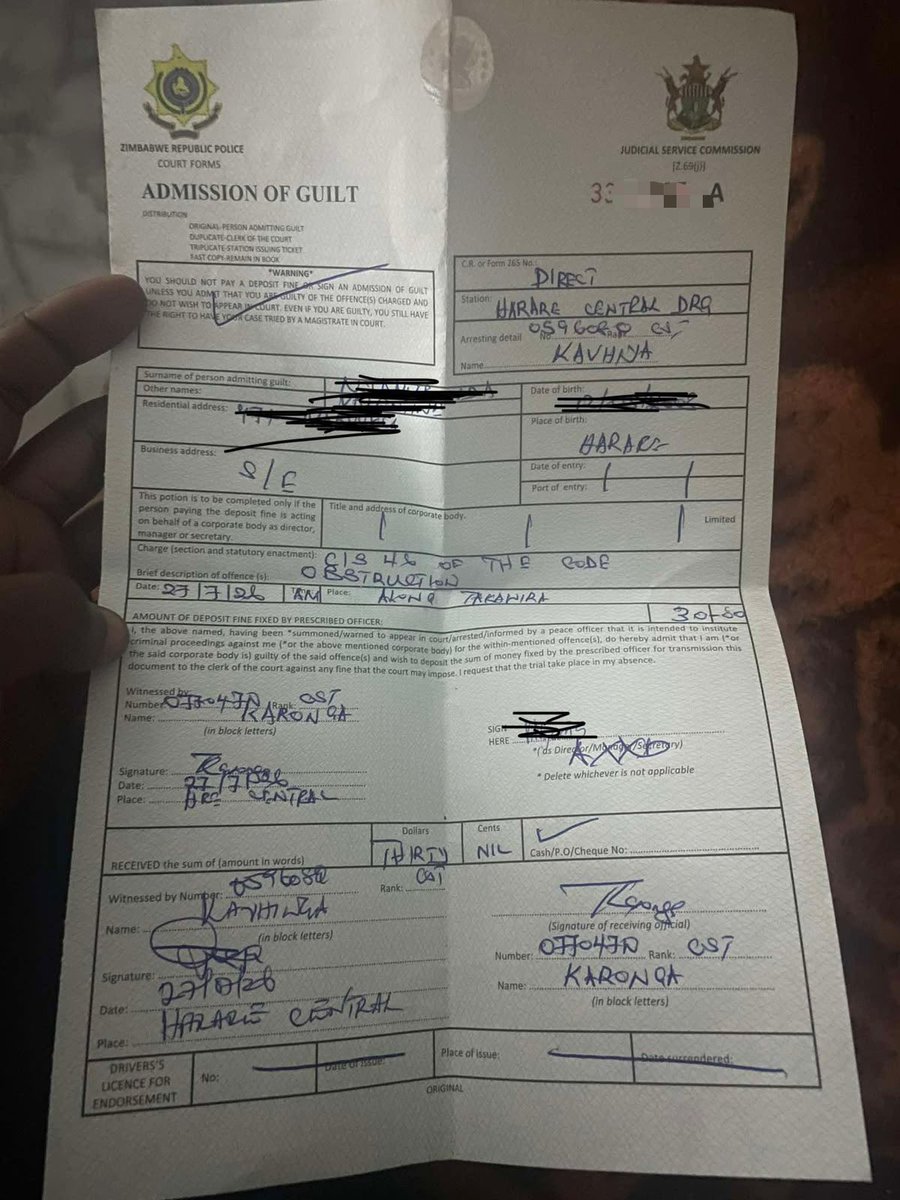 ZIMBABWE REPUBLIC POLICE
COURT FORMS
ADMISSION OF GUILT
DISTRIBUTION
ORIGINAL-PERSON ADMITTING GUILT
DUPLICATE-CLERK OF THE COURT
TRIPLICATE-STATION ISSUING TICKET
FAST COPY-REMAIN IN BOOK
JUDICIAL SERVICE COMMISSION
[Z.69(j)]
33 A
*WARNING*
YOU SHOULD NOT PAY A DEPOSIT FINE OR SIGN AN ADMISSION OF GUILT
UNLESS YOU ADMIT THAT YOU ARE GUILTY OF THE OFFENCE(S) CHARGED AND
DO NOT WISH TO APPEAR IN COURT. EVEN IF YOU ARE GUILTY, YOU STILL HAVE
THE RIGHT TO HAVE YOUR CASE TRIED BY A MAGISTRATE IN COURT.
C.R. or Form 265 No.:
DIRECT
Station: HARARE CENTRAL DRG
Arresting detail No 059608 Ra CST
Name KAVHNYA
Surname of person admitting guilt:
Other names:
Residential address:
Business address:
S/E
Date of birth:
Place of birth:
HARARE
Date of entry:
Port of entry:
This potion is to be completed only if the
person paying the deposit fine is acting
on behalf of a corporate body as director,
manager or secretary.
Title and address of corporate body.
Limited
Charge (section and statutory enactment): C/S 46 OF THE CODE
Brief description of offence (s): OBSTRUCTION
Date: 27/7/26 AM Place: ALONG TAKAWIRA
AMOUNT OF DEPOSIT FINE FIXED BY PRESCRIBED OFFICER:
I, the above named, having been *summoned/warned to appear in court/arrested/informed by a peace officer that it is intended to institute
criminal proceedings against me (*or the above mentioned corporate body) for the within-mentioned offence(s), do hereby admit that I am (*or
the said corporate body is) guilty of the said offence(s) and wish to deposit the sum of money fixed by the prescribed officer for transmission this
document to the clerk of the court against any fine that the court may impose. I request that the trial take place in my absence.
Witnessed by
Number: 077047 Rank: CST
Name: KARONGA
(in block letters)
SIGN
HERE
*(as Director/Manager/Secretary)
* Delete whichever is not applicable
Signature:
Date: 27/7/26
Place: HRE CENTRAL
Dollars
Cents
RECEIVED the sum of (amount in words)
THIRTY
NIL
Cash/P.O/Cheque No:
Witnessed by Number: 059608
Rank: CST
Name:
(in block letters)
Signature:
Date: 27/7/26
Place: HARARE CENTRAL
(Signature of receiving official)
Number: 077047 Rank: CST
Name: KARONGA
(in block letters)
DRIVERS'S
LICENCE FOR
ENDORSEMENT
No:
Date of issue:
Place of issue:
Date surrendered:
ORIGINAL